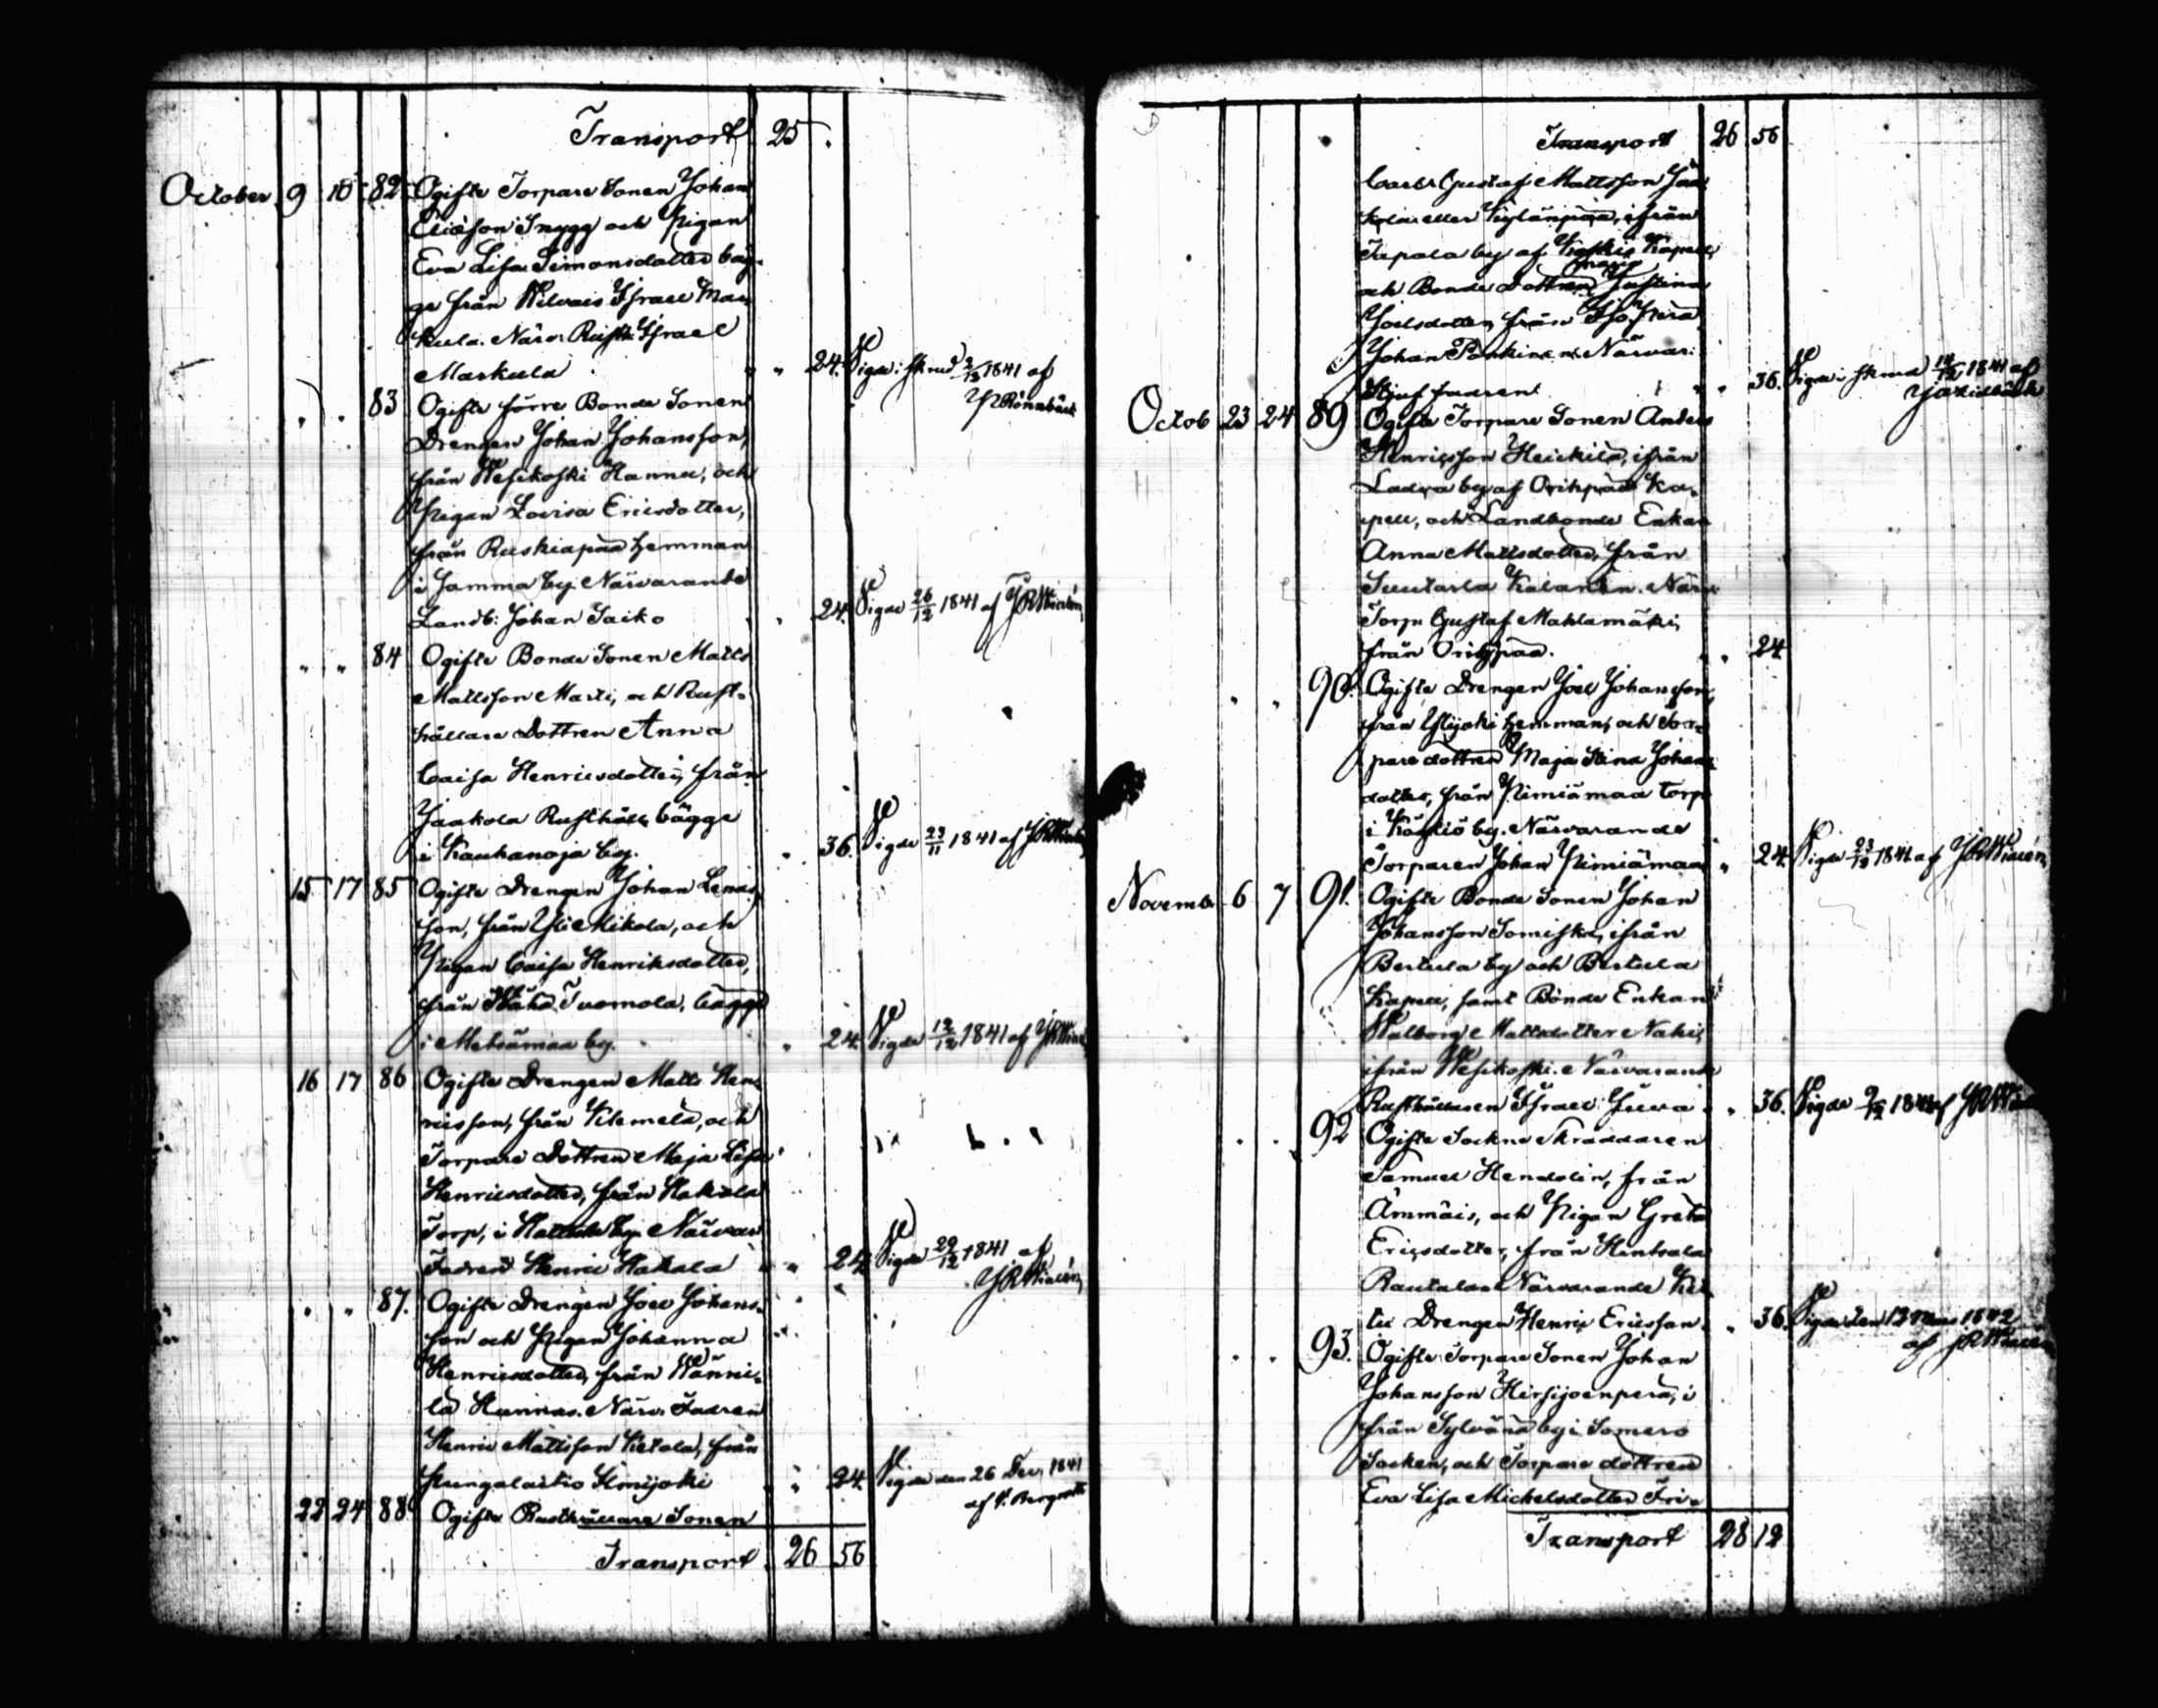 Transport 25 .
October 9 10 82 Ogifte Torpare Sonen Johan
Ericsson Snygg och Pigan
Eva Lisa Simonsdotter båg-
ge från Wilvais Israel Mar-
kula. Närv: Rusth: Israel
Markula " " 24. Vigde i Skrud 2/12 1841 af
J Rönnbäck
" " 83 Ogifte förre Bonde Sonen
Drengen Johan Johansson,
från Wesikoski Hannu, och
Pigan Lovisa Ericsdotter,
från Ruskiapää hemman
i samma by. Närvarande
Landb: Johan Saiko " 24. Vigde 26/12 1841 af
" " 84 Ogifte Bonde Sonen Matts
Mattsson Marti, och Rust-
hållare Dottren Anna
Caisa Henricsdotter, från
Jaakola Rusthåll, bägge
i Kauhanoja by. " 36. Vigde 23/11 1841 af
15 17 85 Ogifte Drengen Johan Lenas-
son, från Yli Mikola, och
Pigan Caisa Henriksdotter,
från Wähä Tuomola, bägge
i Metsämaa by. " 24. Vigde 12/12 1841 af
16 17 86 Ogifte Drengen Matts Hen-
ricsson, från Kilemelä, och
Torpare Dottren Maja Lisa
Henricsdotter, från Hakala
Torp, i by Närvar:
Fadren Henric Hakala " " 24. Vigde 29/12 1841 af
" " 87. Ogifte Drengen Joel Johans-
son och Pigan Johanna
Henricsdotter, från Wänni-
lä Hannas. Närv. Fadren
Henric Mattsson Ketola, från
Pungalaitio " 24. Vigde den 26 Dec. 1841
af
22 24 88 Ogifte Rusthållare Sonen
Transport 26 56
Transport 26 56
Carl Gustaf Mattsson Jaa-
kola eller Kylänpää, ifrån
Tapala by af Koskis Kapell,
och Bonde Dottren Maria Justina
Joelsdotter, från
Johan Närvar:
fadren " " 36. Vigde i Skrud 14/12 1841 af
Octob 23 24 89 Ogifte Torpare Sonen Anders
Henricsson Heickilä, ifrån
af Orihpää Ka-
pell, och Landbonde Enkan
Anna Mattsdotter, från
Suutarla Närv:
Torp: Gustaf Mahlamäki,
från Orihpää. " 24
" " 90. Ogifte Drengen Joel Johansson,
från Ylijoki hemman, och Tor-
pare dottren Maja Stina Johans-
dotter, från Nimiämaa torp
i by. Närvarande
Torparen Johan Nimiämaa " 24. Vigde 23/12 1841 af
Novemb 6 7 91. Ogifte Bonde Sonen Johan
Johansson Somiska, ifrån
Bertula by och Bertula
Kapell, samt Bonde Enkan
Walborg Mattsdotter Naki,
ifrån Wesikoski. Närvarande
Rusthållaren Israel Juva " 36. Vigde
" " 92 Ogifte Sockne Skräddaren
Samuel Hendolin, från
Ämmäis, och Pigan Greta
Ericsdotter, från Hintsala
Rautala. Närvarande
Drengen Henric Ericsson. " 36. Vigde den 1842
af
" " 93. Ogifte Torpare Sonen Johan
Johansson Hirsijoenperä, i
från Sylvänä by i Somero
Socken, och Torpare dottren
Eva Lisa Michelsdotter Fri-
Transport 28 12